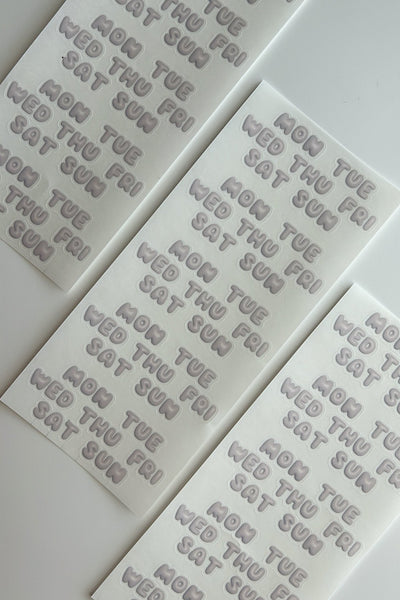 TUE
THU FRI
SAT SUN
MON TUE
WED THU FRI
SAT SUN
MON TUE
WED THU FRI
SAT SUN
MON TUE
THU FRI
SUN
MON TUE
WED THU FRI
SAT SUN
MON TUE
WED THU FRI
SAT SUN
MON TUE
WED THU FRI
SAT SUN
MON TUE
WED THU FRI
SAT SUN
MON TUE
WED THU FRI
SAT SUN
WED THU
SAT SUN
MON TUE
WED THU FRI
SAT SUN
MON TUE
WED THU FRI
SAT SUN
MON TUE
WED THU FRI
SAT SUN
MON
WED